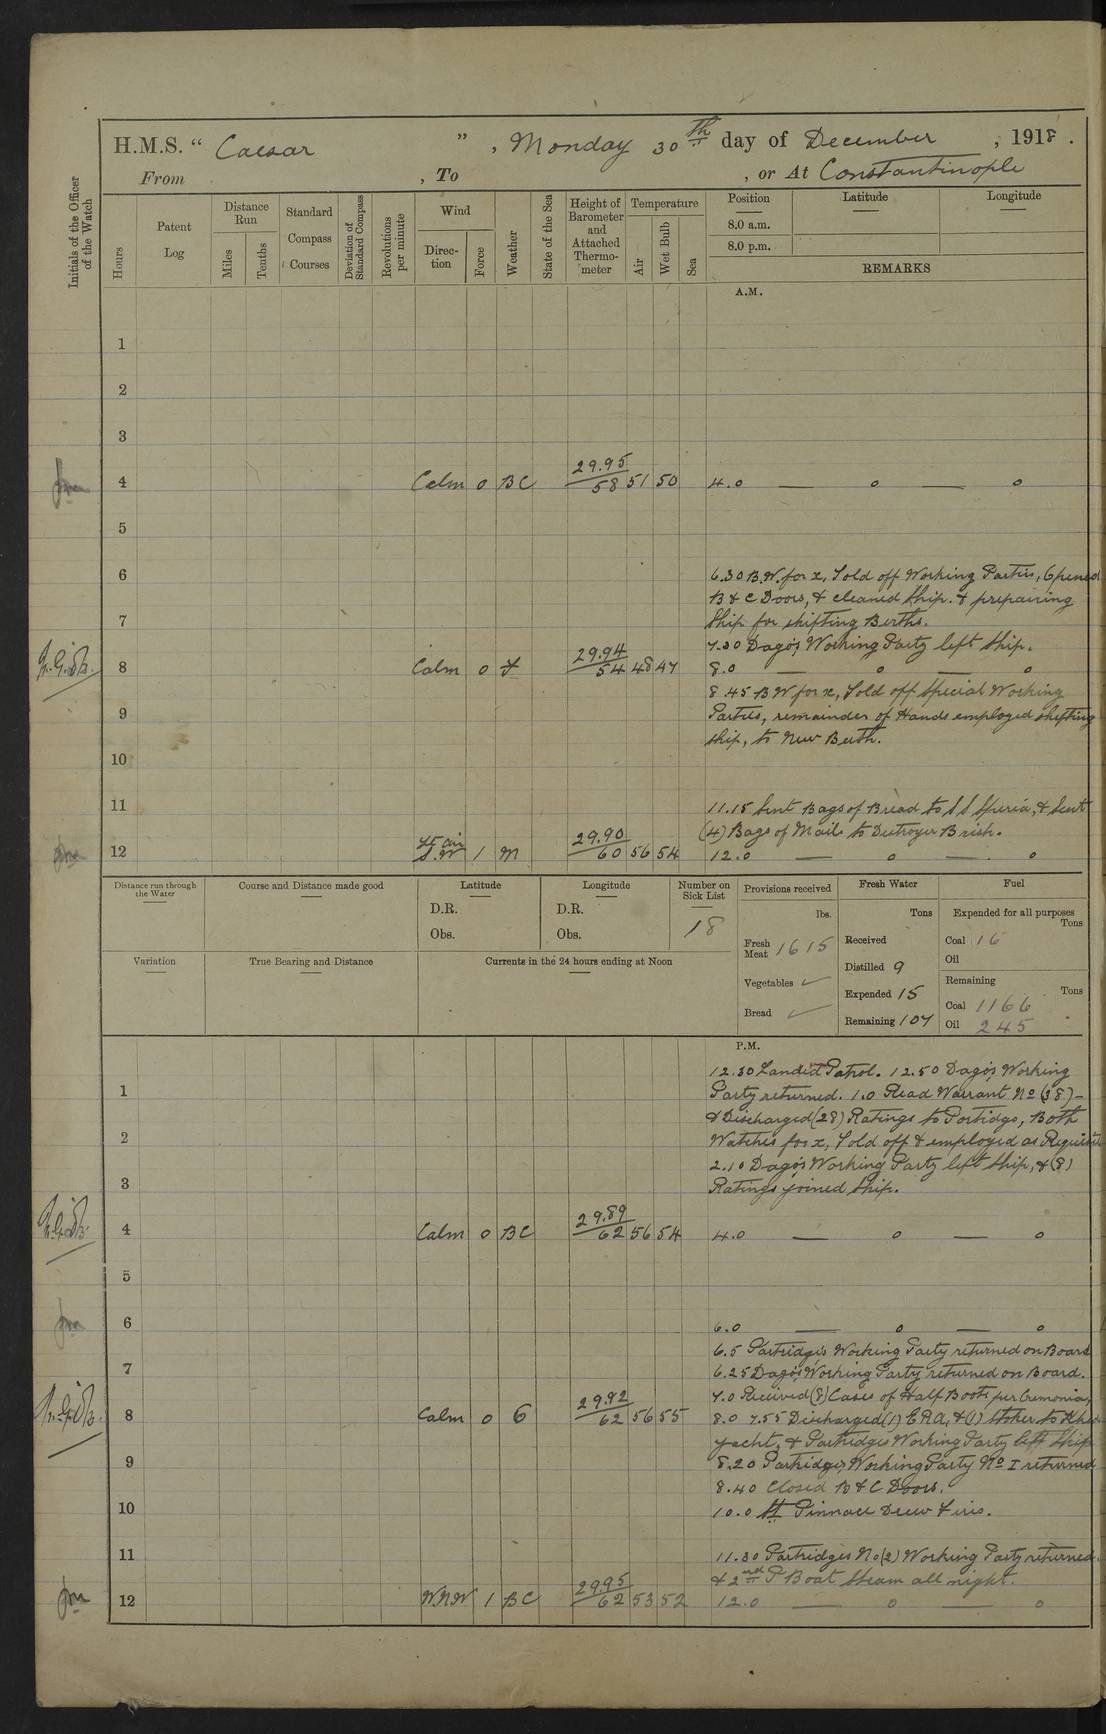 H.M.S. " Caesar ", Monday 30th day of December, 1918.
From , To , or At Constantinople
Initials of the Officer of the Watch
Hours
Patent Log
Distance Run
Miles
Tenths
Standard Compass Courses
Deviation of Standard Compass
Revolutions per minute
Wind
Direction
Force
Weather
State of the Sea
Height of Barometer and Attached Thermometer
Temperature
Air
Wet Bulb
Sea
Position
Latitude
Longitude
8.0 a.m.
8.0 p.m.
REMARKS
A.M.
1
2
3
4 Calm 0 BC 29.95 58 51 50 4.0 — o — o
5
6 6.30 B.W. for x, Told off Working Parties, Opened
B & C Doors, & cleaned Ship. & prepairing
7 Ship for shifting Births.
7.30 Dago's Working Party left Ship.
8 Calm 0 f 29.94 54 48 47 8.0 — o — o
8.45 B W for x, Told off Special Working
9 Parties, remainder of Hands employed shifting
ship, to New Berth.
10
11 11.15 Sent Bags of Bread to S S Speria, & Sent
(4) Bags of Mails to Destroyer Brisk.
12 Lt Air S.W 1 M 29.90 60 56 54 12.0 — o — o
Distance run through the Water
Course and Distance made good
Latitude
D.R.
Obs.
Longitude
D.R.
Obs.
Number on Sick List
18
Provisions received
lbs.
Fresh Meat 1615
Vegetables ✓
Bread ✓
Fresh Water
Tons
Received
Distilled 9
Expended 15
Remaining 107
Fuel
Expended for all purposes
Tons
Coal 16
Oil
Remaining
Tons
Coal 1166
Oil 245
Variation
True Bearing and Distance
Currents in the 24 hours ending at Noon
P.M.
12.30 Landed Patrol. 12.50 Dago's Working
1 Party returned. 1.0 Read Warrant No (38) -
& Discharged (28) Ratings to Partidge, Both
2 Watches for x, Told off & employed as Requisite
2.10 Dago's Working Party left Ship, & (8)
3 Ratings joined Ship.
4 Calm 0 BC 29.89 62 56 54 4.0 — o — o
5
6 6.0 — o — o
6.5 Partridges Working Party returned on Board
7 6.25 Dago's Working Party returned on Board.
7.0 Received (8) Cases of Half Boots per Cremonia,
8 Calm 0 C 29.92 62 56 55 8.0 7.55 Discharged (1) E R A, & (1) Stoker to
yacht, & Partridges Working Party left Ship
9 8.20 Partridges Working Party No I returned
8.40 Closed B & C Doors.
10 10.0 St Pinnace Drew Firis.
11 11.30 Partridges No (2) Working Party returned.
& 2nd P Boat Steam all night.
12 W.N.W 1 BC 29.95 62 53 52 12.0 — o — o